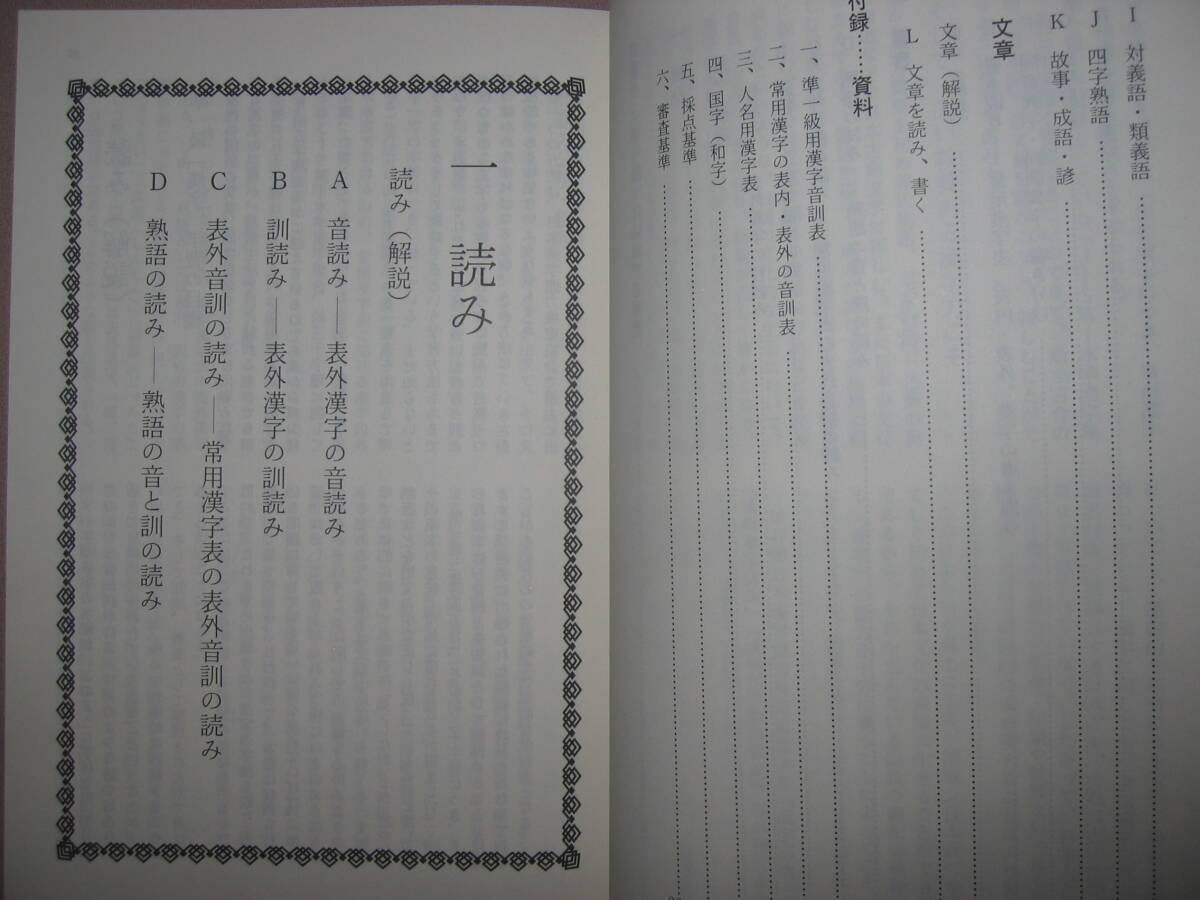 I 対義語・類義語
J 四字熟語
K 故事・成語・諺
文章
文章（解説）
L 文章を読み、書く
付録……資料
一、準一級用漢字音訓表
二、常用漢字の表内・表外の音訓表
三、人名用漢字表
四、国字（和字）
五、採点基準
六、審査基準
一 読み
読み（解説）
A 音読み——表外漢字の音読み
B 訓読み——表外漢字の訓読み
C 表外音訓の読み——常用漢字表の表外音訓の読み
D 熟語の読み——熟語の音と訓の読み